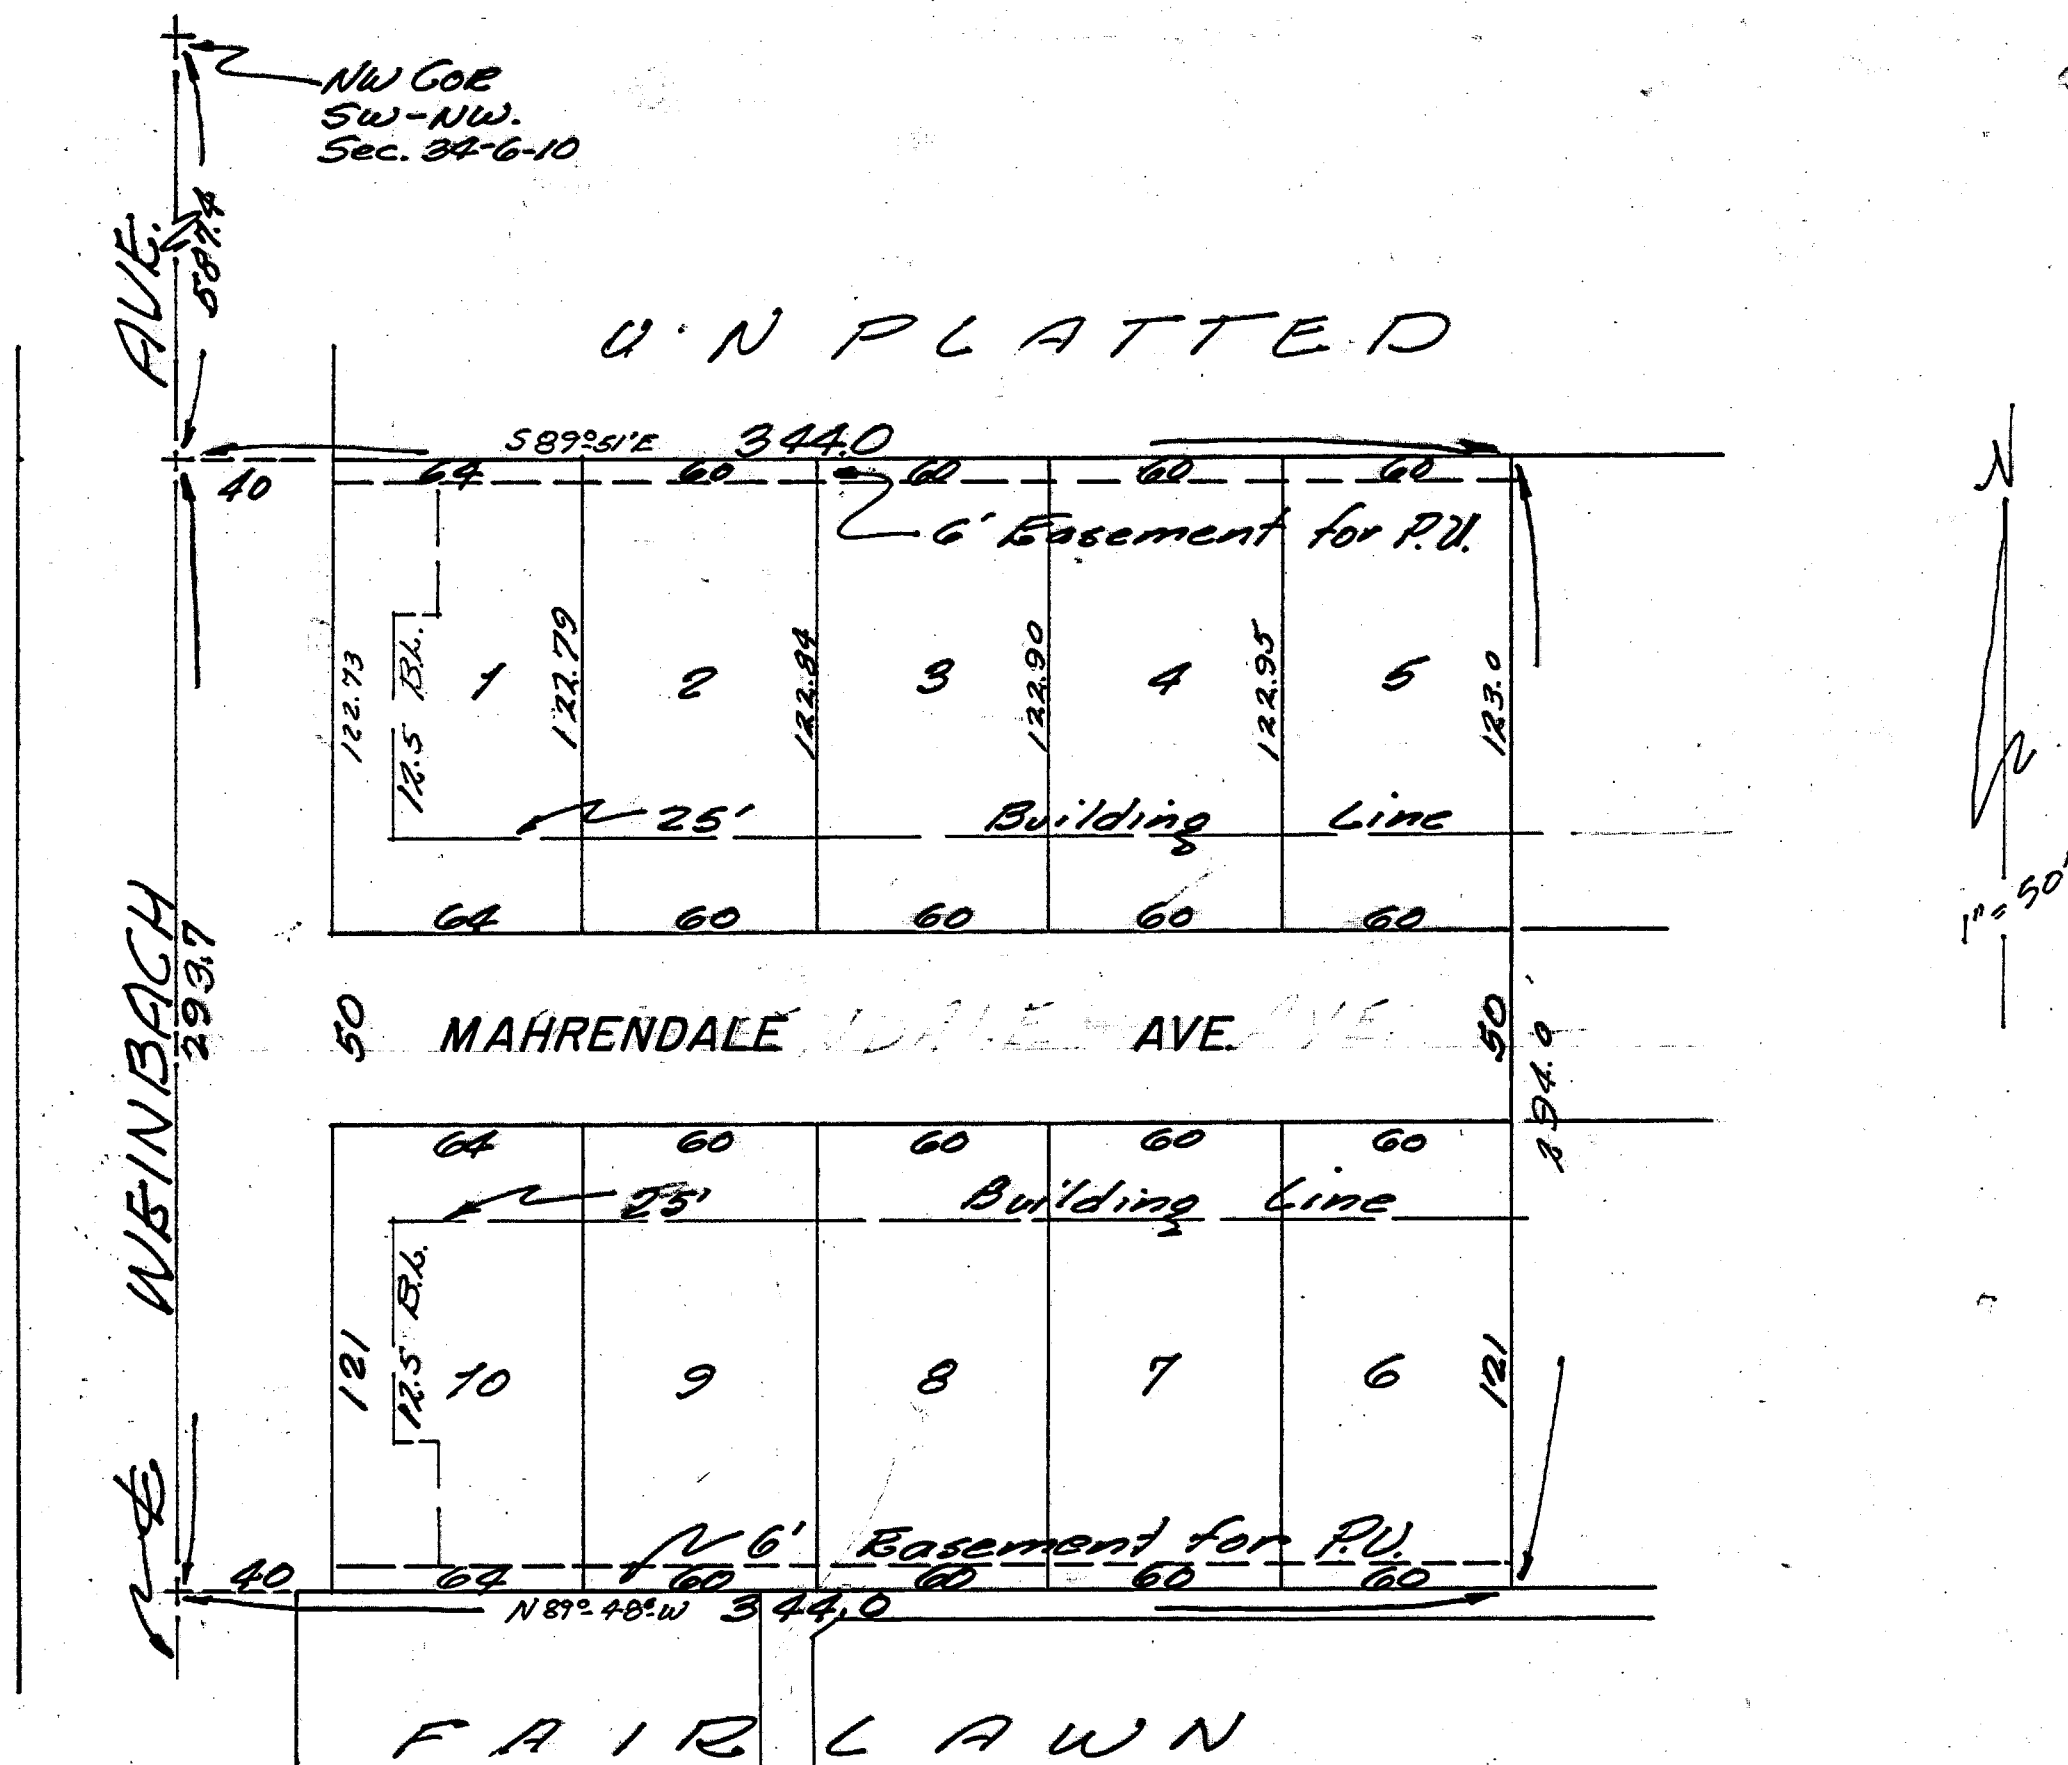 NW COR
SW-NW.
Sec. 34-6-10
AVE.
587.4
U·N PLATTED
S 89°-51' E 344.0
40
64 60 60 60 60
6' Easement for P.U.
N
122.73
12.5 B.L.
1
122.79
2
122.84
3
122.90
4
122.95
5
123.0
25' Building Line
64 60 60 60 60
1" = 50'
WEINBACH
293.7
50
MAHRENDALE AVE.
50
294.0
64 60 60 60 60
25' Building Line
121
12.5 B.L.
10 9 8 7 6
121
6' Easement for P.U.
40
64 60 60 60 60
N 89°-48'-W 344.0
FAIR LAWN